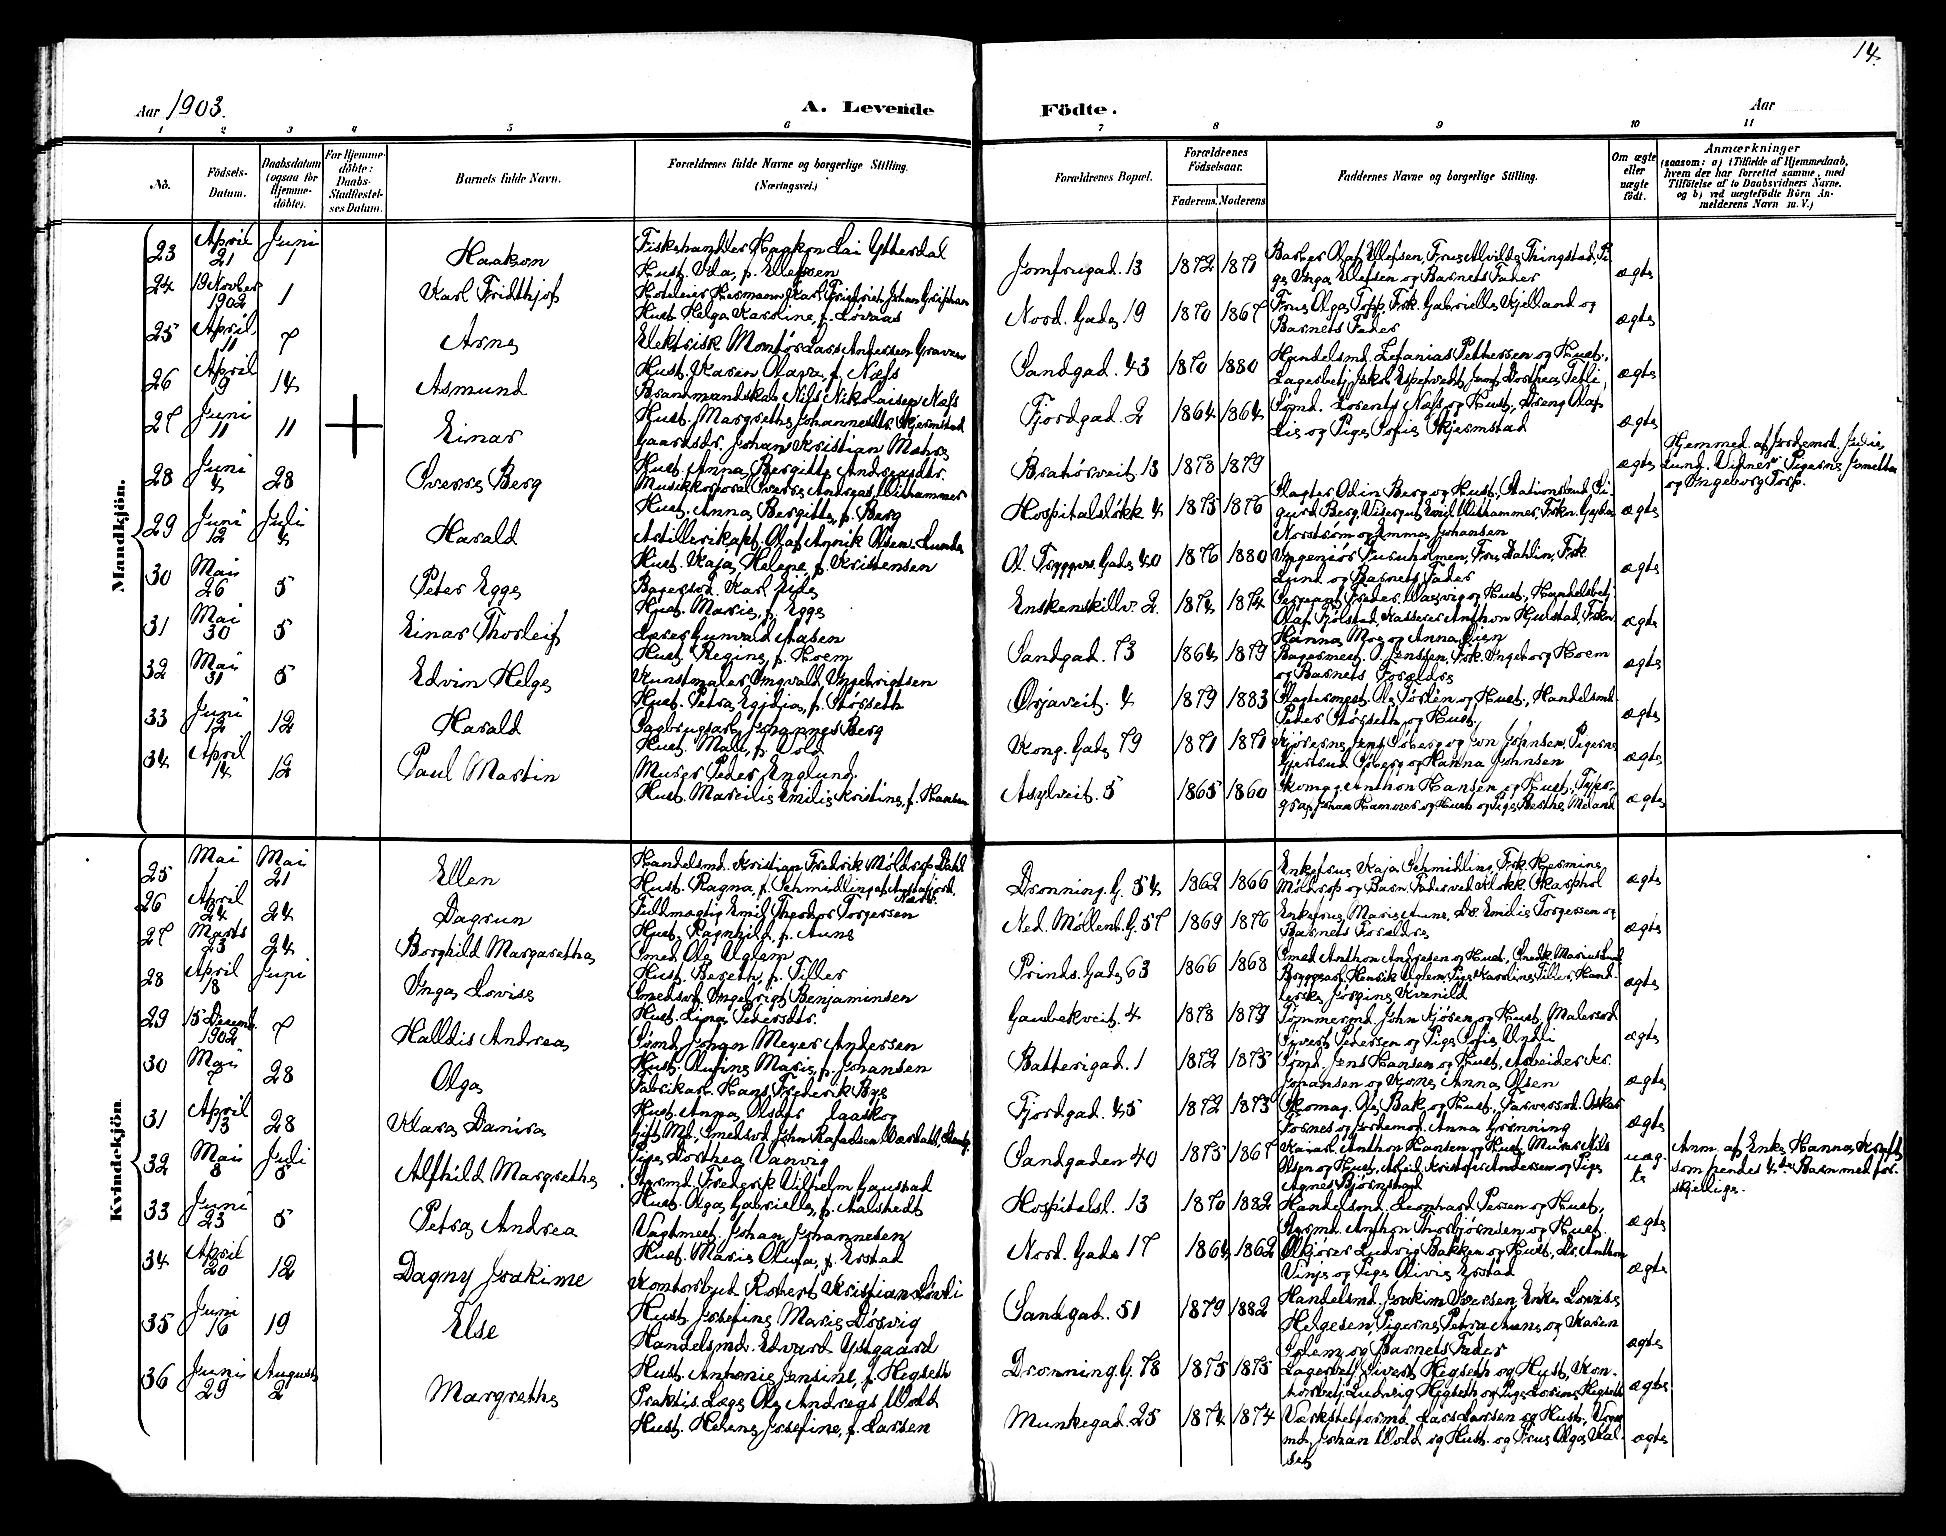 14.
Aar 1903.
A. Levende
Födte.
Aar
1 2 3 4 5 6 7 8 9 10 11
No.
Födsels-Datum.
Daabsdatum (ogsaa for Hjemme-döbte).
For Hjemme-döbte: Daabs-Stadfæstel-ses Datum.
Barnets fulde Navn.
Forældrenes fulde Navne og borgerlige Stilling. (Næringsvei.)
Forældrenes Bopæl.
Forældrenes Födselsaar.
Faderens. Moderens.
Faddernes Navne og borgerlige Stilling.
Om ægte eller uægte födt.
Anmærkninger
(saasom: a) i Tilfælde af Hjemmedaab, hvem der har forrettet samme, med Tilföielse af to Daabsvidners Navne. og b) ved uægtefödte Börn Anmelderens Navn m. V.)
Mandkjön.
23 April 21 Juni 1 Haakon
Fiskehandler Haakon Lai Ytterdal
Hust. Ida, f. Ellefsen
Jomfrugad. 13 1872 1871
Barber Olaf Ellefsen, Frue Alvilde Thingstad, Pi-
ge Inga Ellefsen og Barnets Fader
ægte
24 19 Novber 1902 1 Karl Fridthjof
Hoteleier Hermann Karl Friedrich Johan
Hust. Helga Karoline, f. Løvaas
Nord. Gade 19 1870 1867
Frue Olga Topp, Frk. Gabrielle Kjelland og
Barnets Fader
ægte
25 April 11 7 Arne
Elektrisk Montør Lars Andersen Graven
Hust. Karen Olava, f. Næss
Sandgad. 43 1870 1880
Handelsmd. Zefanias Pettersen og Hust.,
ægte
26 April 9 14 Asmund
Brandmandskab Nils Nikolaisen Næss
Hust. Margrethe Johannesdtr. Skjermstad
Fjordgad. 2 1864 1864
Sømd. Lorents Næss og Hust., Dreng Olaf
Lie og Pige Sofie Skjermstad
ægte
27 Juni 11 11 Einar
Gaardsdr. Johan Kristian Mæhre
Hust. Anna Bergitte Andreasdtr.
Bratørveit. 13 1878 1879
ægte
Hjemmed. af Jordemod. Julie
Lund. Vidner: Pigerne
og Ingeborg Torp.
28 Juni 4 28 Sverre Berg
Musikkorporal Sverre Andreas Withammer
Hust. Anna Bergitte, f. Berg
Hospitalsløkk. 4 1875 1876
Slagter Odin Berg og Hust., Stationsbud Si-
gurd Berg, Visergut Emil Withammer, Frkn. Gejda
Norstrøm og Emma Johansen
ægte
29 Juni 12 Juli 4 Harald
Artillerikapt. Olaf Olsen Lunde
Hust. Kaja Helene, f. Kristensen
Ol. Tryggves. Gade 40 1876 1880
Ingeniør Furuholmen, Frue Dahlin, Frk.
Lund og Barnets Fader
ægte
30 Mai 26 5 Peter Egge
Bagersvd. Karl Eide
Hust. Marie, f. Egge
Enkenskillv. 2 1874 1874
Sergeant Peder Waavig og Hust., Handelsbetj.
Olaf Fjølstad, Kasserer Anthon Hjulstad, Frkn.
Hanna Moe og Anna Lien
ægte
31 Mai 30 5 Einar Thorleif
Lærer Gunvald Aasen
Hust. Regine, f. Hoem
Sandgad. 73 1864 1879
Bagermest. O. Jenssen, Frk. Ingeborg Hoem
og Barnets Forældre
ægte
32 Mai 31 5 Edvin Helge
Kunstmaler Ingvald Ingebrigtsen
Hust. Petra Egidia, f. Størseth
Ørjaveit. 4 1879 1883
Slagtermest. Ole Sørlén og Hust., Handelsmd.
Peder Størseth og Hust.
ægte
33 Juni 12 12 Harald
Sagbrugsarb. Johannes Berg
Hust. Mali, f. Vold
Kong. Gade 79 1871 1871
Kjørerne Jens Søberg og Jon Johnsen, Pigerne
Gjertrud Søberg og Hanna Johnsen
ægte
34 April 14 12 Paul Martin
Murer Peder Englund.
Hust. Marcilie Emilie Kristine, f. Hansen
Asylveit. 5 1865 1860
Skomag. Anthon Hansen og Hust., Typo-
graf Johan Hammer og Hust. og Pige Berthe Meland
ægte
Kvindekjön
25 Mai 1 Mai 21 Ellen
Handelsmd. Kristian Fredrik Möldrop Dahl
Hust. Ragna, f. Schmidling
Dronning. G. 54 1862 1866
Enkefrue Kaja Schmidling, Frk. Hermine
Möldrop og Barn. Fader ved Klokk. Skarphol
ægte
26 April 24 24 Dagrun
Fuldmægtig Emil Theodor Torgersen
Hust. Ragnhild, f. Aune
Ned. Møllenb. G. 57 1869 1876
Enkefrue Marie Aune, Do. Emilie Torgersen og
Barnets Forældre
ægte
27 Marts 23 24 Borghild Margarethe
Smed Ole Uglem
Hust. Bereth, f. Tiller
Prinds. Gade 63 1866 1868
Smed Anthon Andresen og Hust., Snedk. Marius Lund
Bryggearb. Henrik Uglem, Pige Karoline Tiller, Hand-
lerske Jørgine Kvenild
ægte
28 April 18 Juni 1 Inga Lovise
Smedsvd. Ingebrigt Benjaminsen
Hust. Lina Pedersdtr.
Gaubekveit. 4 1878 1879
Tømmermd. John Sjøsen og Hust., Malersvd.
Sivert Pedersen og Pige Sofie Undli
ægte
29 15 Decemb. 1902 7 Halldis Andrea
Sømd. Johan Meyer Andersen
Hust. Olufine Marie, f. Johansen
Batterigad. 1 1872 1875
Sømd. Jens Hansen og Hust., Arbeider Kr.
Johansen og Kone Anna Olsen
ægte
30 Mai 7 28 Olga
Fabrikarb. Hans Frederik Bye
Hust. Anna Olsdtr.
Fjordgad. 45 1872 1873
Skomag. Ole Bak og Hust., Farversvd. Oskar
Fosnes og Jordemod. Anna Grønning
ægte
31 April 13 28 Klara Danira
Gift Md., Smedsvd. John Rafaelsen
Pige Dorthea Vanvig
Sandgaden 40 1875 1867
Kaiarb. Anthon Hansen og Hust., Murer Nils
Olsen og Hust., Arbeid. Kristofer Andersen og Pige
Agnes Bjørnstad
uæg-
te
Anm. af Enke Hanna
som hendes 4de Barn med for-
skjellige.
32 Mai 8 Juli 5 Alfhild Margrethe
Styrmd. Frederik Vilhelm Gaustad
Hust. Olga Gabrielle, f. Aalstedt
Hospitalsl. 13 1870 1882
Handelsmd. Leonhard Persen og Hust.,
Styrmd. Anthon Thorbjørnsen og Hust.
ægte
33 Juni 23 5 Petra Andrea
Vagtmest. Johan Johannesen
Hust. Marie Olufa, f. Erstad
Nord. Gade 17 1864 1862
Ølkjører Ludvig Bakken og Hust., Do. Anthon
Vinje og Pige Olivie Erstad
ægte
34 April 20 12 Dagny Joakime
Kontorbud Robert Kristian Lövli
Hust. Josefine Marie Dösvig
Sandgad. 51 1879 1882
Handelsmd. Joakim Iversen, Enke Lovise
Helgesen, Pigerne Petra Aune og Karen
Solem og Barnets Fader
ægte
35 Juni 16 19 Else
Handelsmd. Edvard Ystgaard
Hust. Antonie Jensine, f. Hegseth
Dronning. G. 78 1875 1875
Lagerbetj. Sivert Hegseth og Hust., Kon-
torbetj. Ludvig Hegseth og Pige Lorine Hegseth
ægte
36 Juni 29 August 2 Margrethe
Praktis. Læge Ole Andreas Wold
Hust. Helene Josefine, f. Larsen
Munkegad. 25 1874 1874
Værkstedformd. Lars Larsen og Hust.,
md. Johan Wold og Hust. og Frue Olga Kal-
seg
ægte